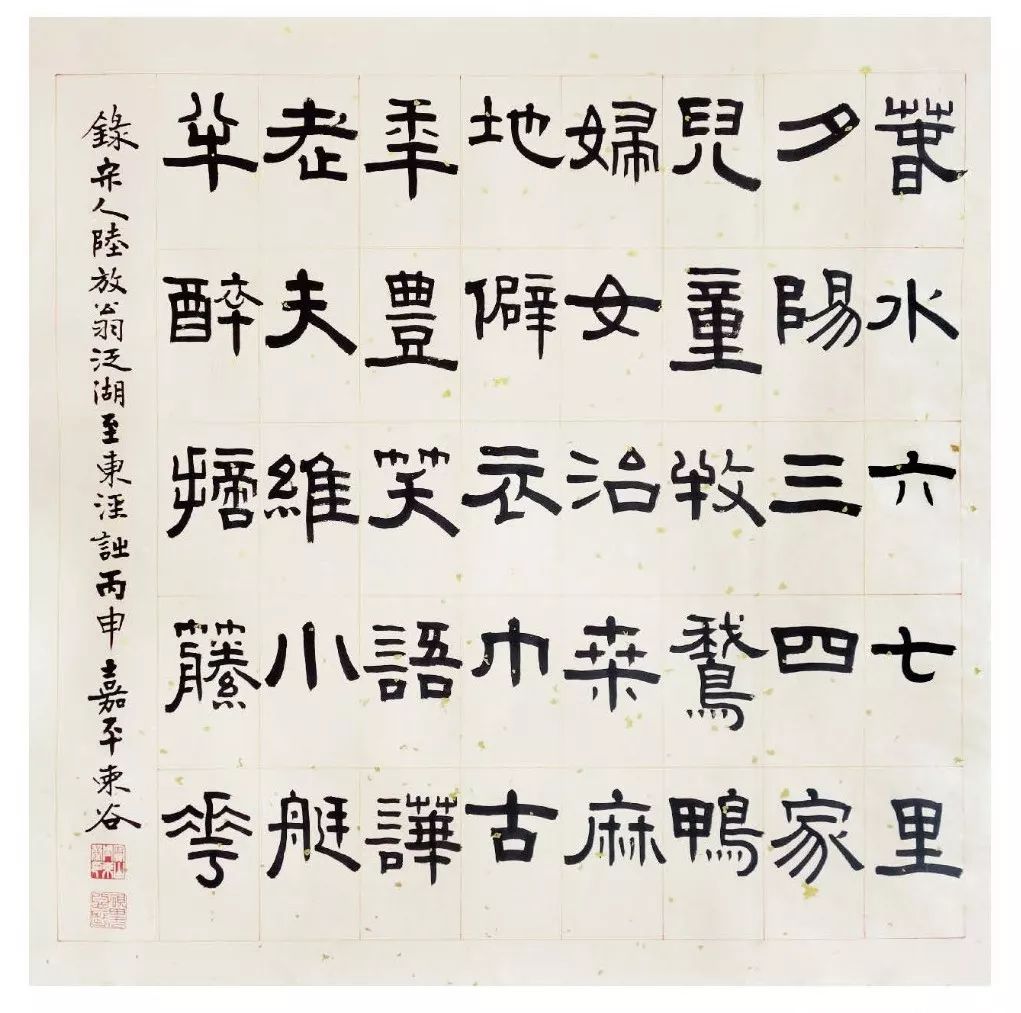 春水六七里
夕陽三四家
兒童牧鵞鴨
婦女治桒麻
地僻衣巾古
年豐笑語譁
老夫維小艇
半醉擿藤花
錄宋人陸放翁泛湖至東涇詩丙申嘉平東谷